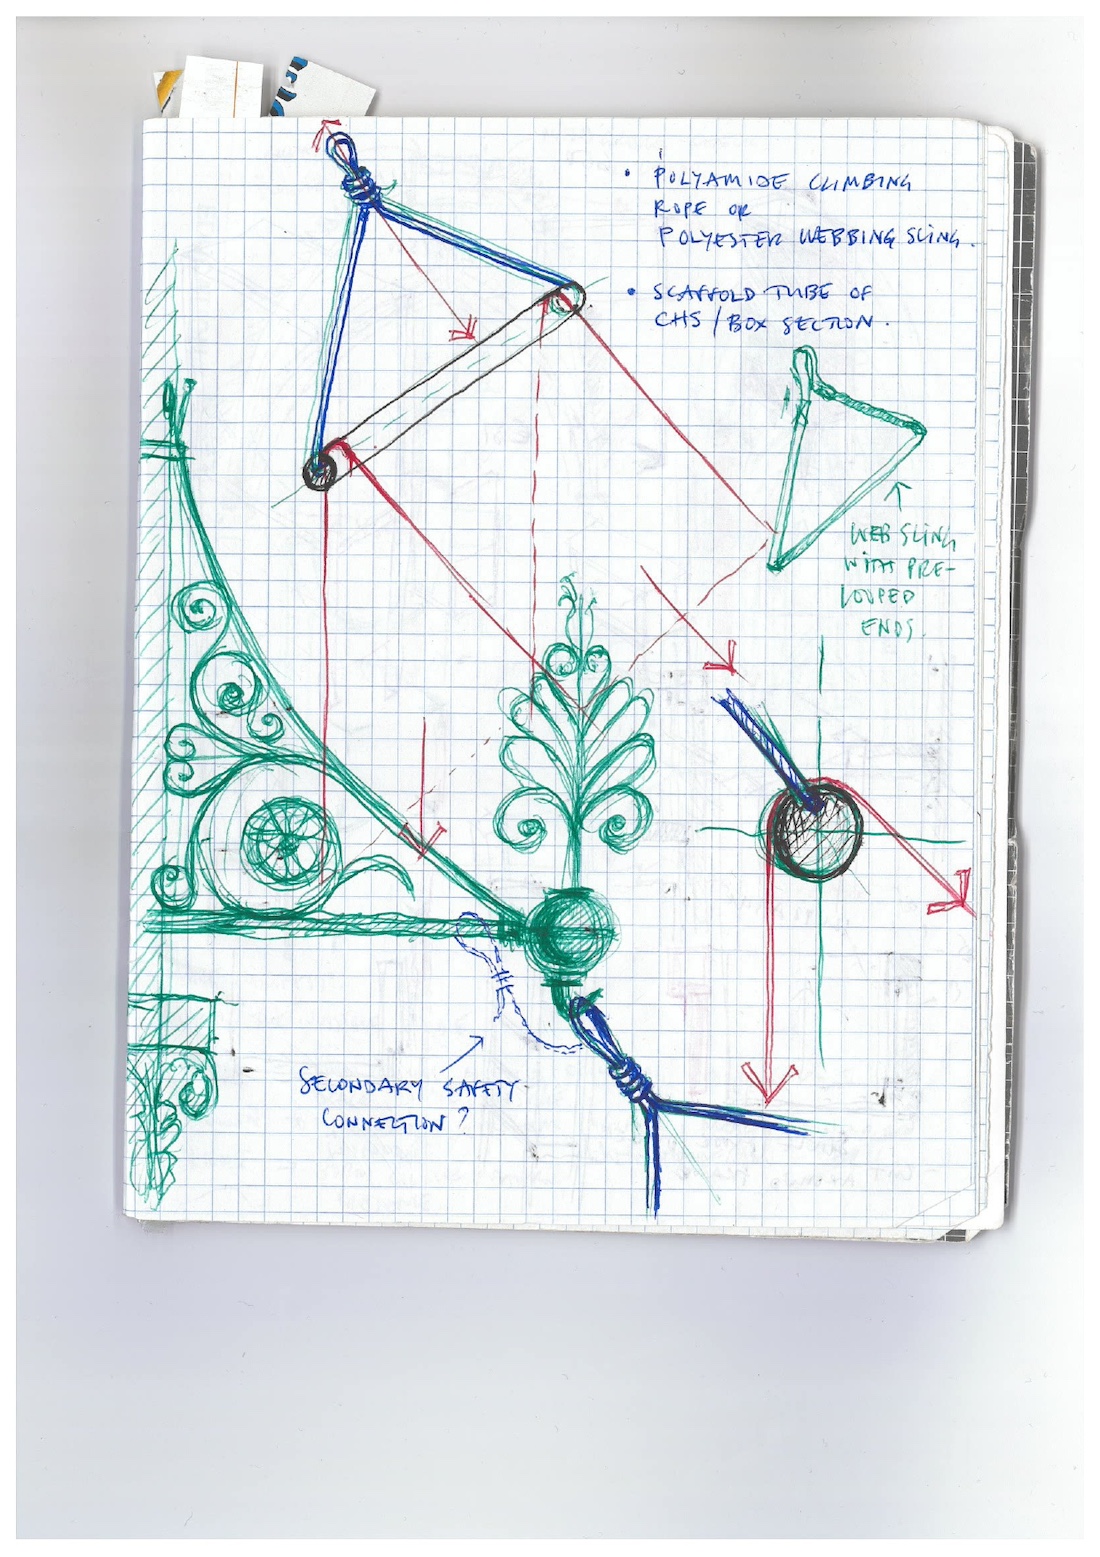 • POLYAMIDE CLIMBING
ROPE OR
POLYESTER WEBBING SLING.
• SCAFFOLD TUBE OF
CHS / BOX SECTION.
WEB SLING
WITH PRE-
LOOPED
ENDS.
SECONDARY SAFETY
CONNECTION?